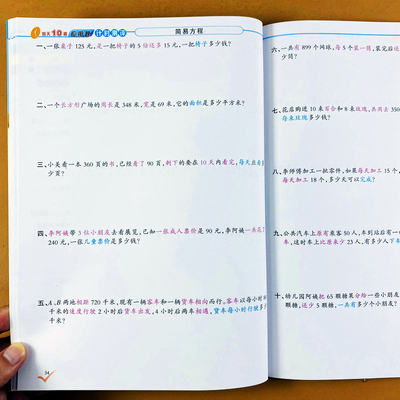 每天10道 应用题 计时测评
简易方程
一、一张桌子 125 元,是一把椅子的 5 倍还多 15 元,一把椅子多少钱?
二、一个长方形广场的周长是 348 米,宽是 69 米,它的面积是多少平方米?
三、小美看一本 360 页的书,已经看了 90 页,剩下的要在 10 天内看完,每天应看
少页?
四、李阿姨带 3 位小朋友去看展览,已知一张成人票价是 90 元,李阿姨一共花了
240 元,一张儿童票价是多少钱?
五、A、B 两地相距 720 千米,现有一辆客车和一辆货车相向而行,客车以每小时
千米的速度行驶 2 小时后货车出发,4 小时后两车相遇,货车每小时行驶多
千米?
34
六、一共有 899 个网球,每 5 个装一筒,装完后还
少筒?
七、花店购进 10 束百合和 8 束玫瑰,共用去 350
每束玫瑰多少钱?
八、李师傅加工一批零件,如果每天加工 15 个,
每天加工 18 个,多少天可以完成?
九、公共汽车上原有乘客 50 人,车到站后有一
车,这时车上比原来少 23 人,有多少人下车
十、幼儿园阿姨把 65 颗糖果分给一些小朋友
颗糖,还少 5 颗糖,一共有多少个小朋友?